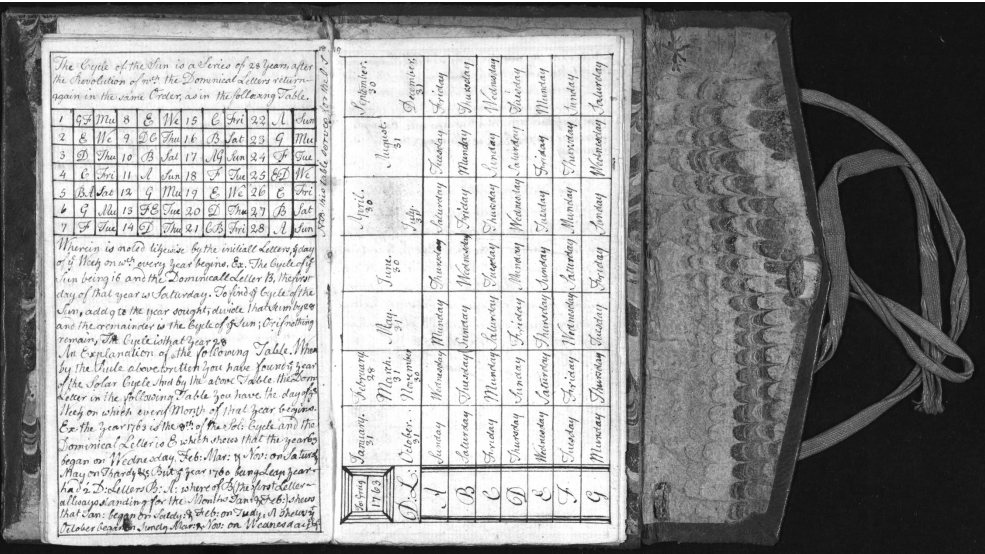 The Cycle of the Sun is a Series of 28 Years, after
the Revolution of wch the Dominical Letters return
again in the same Order, as in the following Table.
1 GF Mu 8 E We 15 C Fri 22 A Sun
2 E We 9 DC Thu 16 B Sat 23 G Mu
3 D Thu 10 B Sat 17 AG Sun 24 F Tue
4 C Fri 11 A Sun 18 F Tue 25 ED We
5 BA Sat 12 G Mu 19 E We 26 C Fri
6 G Mu 13 FE Tue 20 D Thu 27 B Sat
7 F Tue 14 D Thu 21 CB Fri 28 A Sun
Wherein is noted likewise by the initiall Letters, ye day
of ye Week on wch every Year begins. Ex. The Cycle of ye
Sun being 16 and the Dominicall Letter B, the first
day of that year is Satturday. To find ye Cycle of the
Sun, add 9 to the year sought; divide that Sum by 28
and the remainder is the Cycle of ye Sun; Or if nothing
remain, The Cycle is that year 28
An Explanation of the following Table. When
by the Rule above written You have found ye year
of the Solar Cycle And by the above Table the Dom:
Letter in the following Table You have the day of ye
Week on which every Month of that Year begins.
Ex: the Year 1763 is the of the Sol: Cycle and the
Dominical Letter is E which shews that the year 63
began on Wednesday, Feb: Mar: & Nov: on Saturd
May on But ye year 1760 being Leap year
had 2 D: Letters B: A: where of B the first Letter
allways standing for the Months Jan: & Feb: shews
that Jan: began on Satdy: & Feb: on Tudy: A shews yt
October began on Sundy Mar: & Nov: on Wednesday
NB. this table serves for the O.S.
To Grig
1763
January. 31 February 28 May. 31 June. 30 April. 30 August. 31 September. 30
D:L: October. 31 March. 31 July. 31 December. 31
November 30
A Sunday Wednesday Munday Thursday Saturday Tuesday Friday
B Saturday Tuesday Sunday Wednesday Friday Munday Thursday
C Friday Munday Saturday Tuesday Thursday Sunday Wednesday
D Thursday Sunday Friday Munday Wednesday Saturday Tuesday
E Wednesday Saturday Thursday Sunday Tuesday Friday Munday
F Tuesday Friday Wednesday Saturday Munday Thursday Sunday
G Munday Thursday Tuesday Friday Sunday Wednesday Saturday